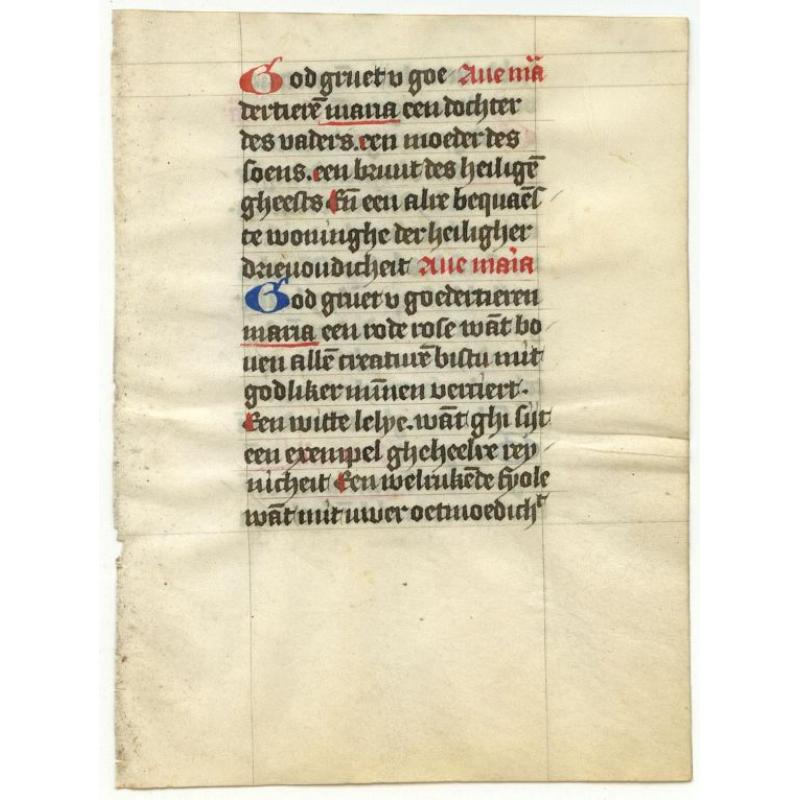 God gruet v goe Aue mā
dertierē maria een dochter
des vaders. een moeder des
soens. een bruut des heiligē
gheests Eñ een alre bequaēs
te woninghe der heiligher
drieuoudicheit Aue maīa
God gruet v goedertieren
maria een rode rose wāt bo
uen allē creaturē bistu mit
godliker mīnen verciert.
Een witte lelye. wāt ghi sijt
een exempel gheheelre rey
nicheit Een welrukēde fyole
wāt mit uwer oetmoedichᵗ